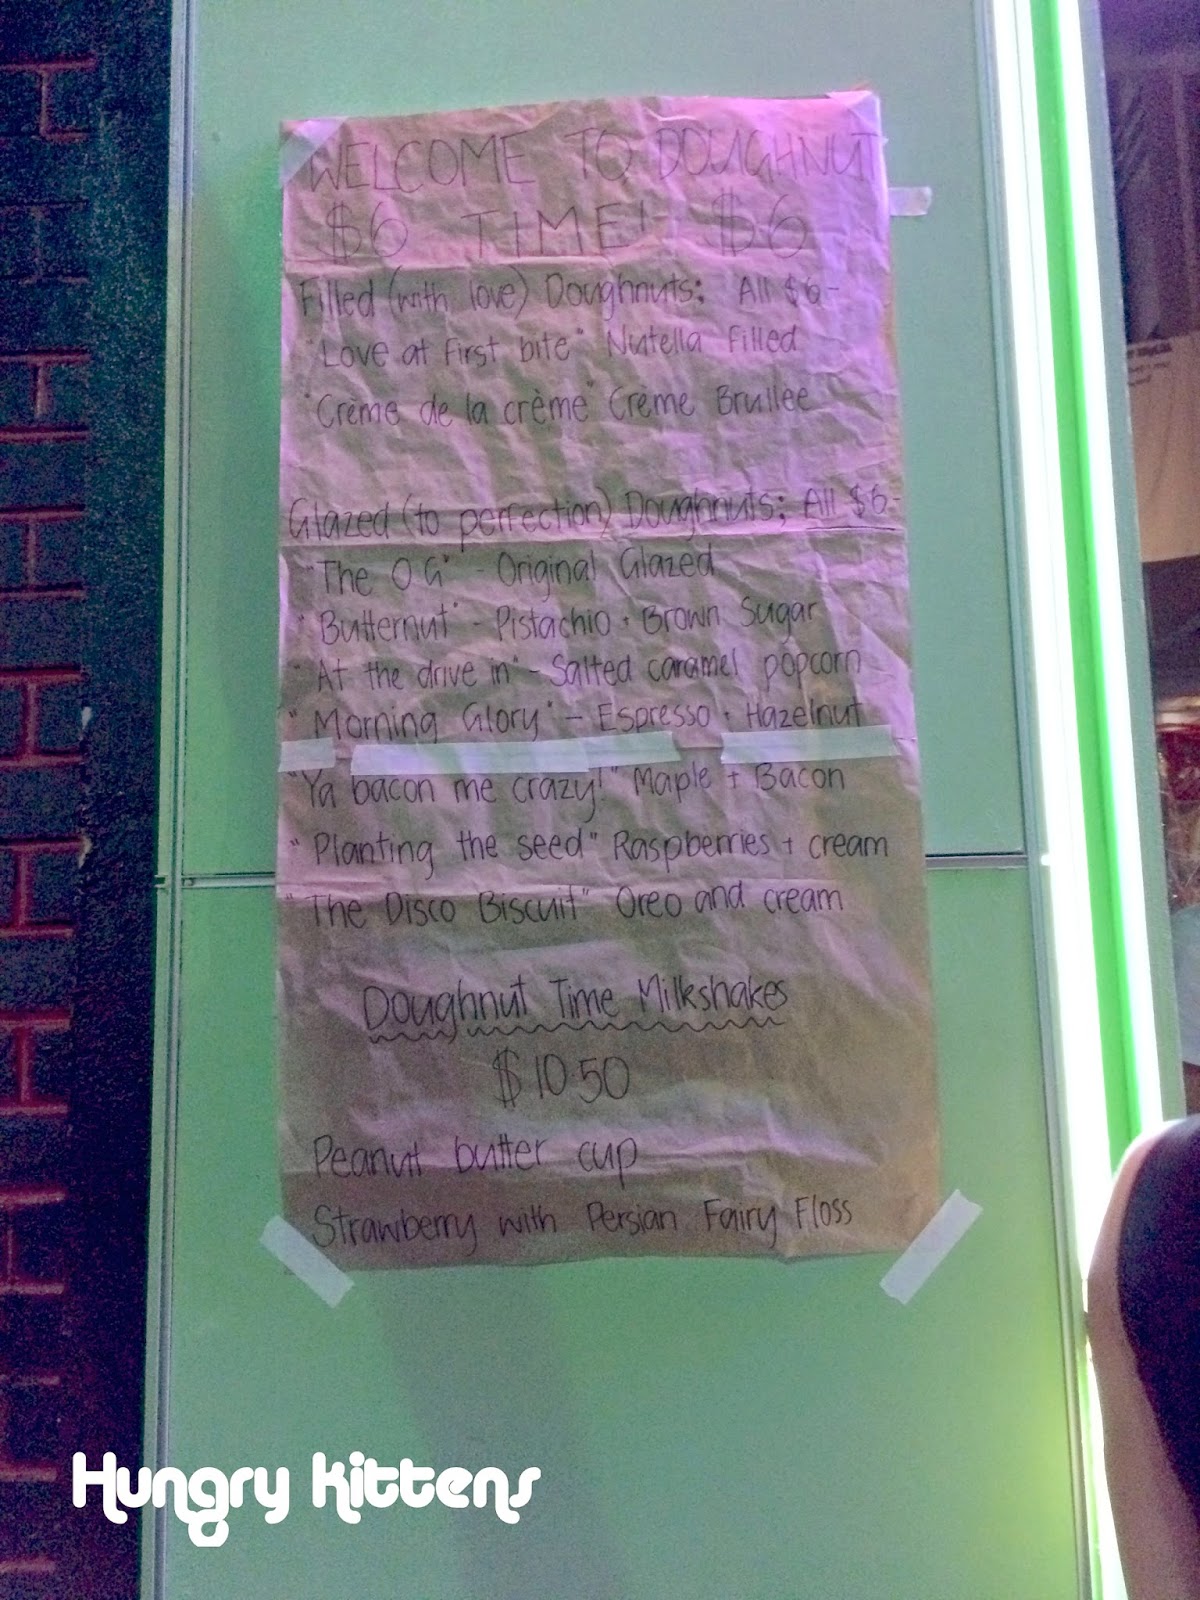 WELCOME TO DOUGHNUT
$6 TIME! $6
Filled (with love) Doughnuts; All $6-
"Love at first bite" Nutella Filled
"Crème de la crème" Crème Brullee
Glazed (to perfection) Doughnuts; All $6-
"The OG" - Original Glazed
"Butternut" - Pistachio + Brown Sugar
"At the drive in" - Salted caramel popcorn
"Morning Glory" - Espresso + Hazelnut
"Ya bacon me crazy!" Maple + Bacon
"Planting the seed" Raspberries + cream
"The Disco Biscuit" Oreo and cream
Doughnut Time Milkshakes
$10.50
Peanut butter cup
Strawberry with Persian Fairy Floss
Hungry Kittens